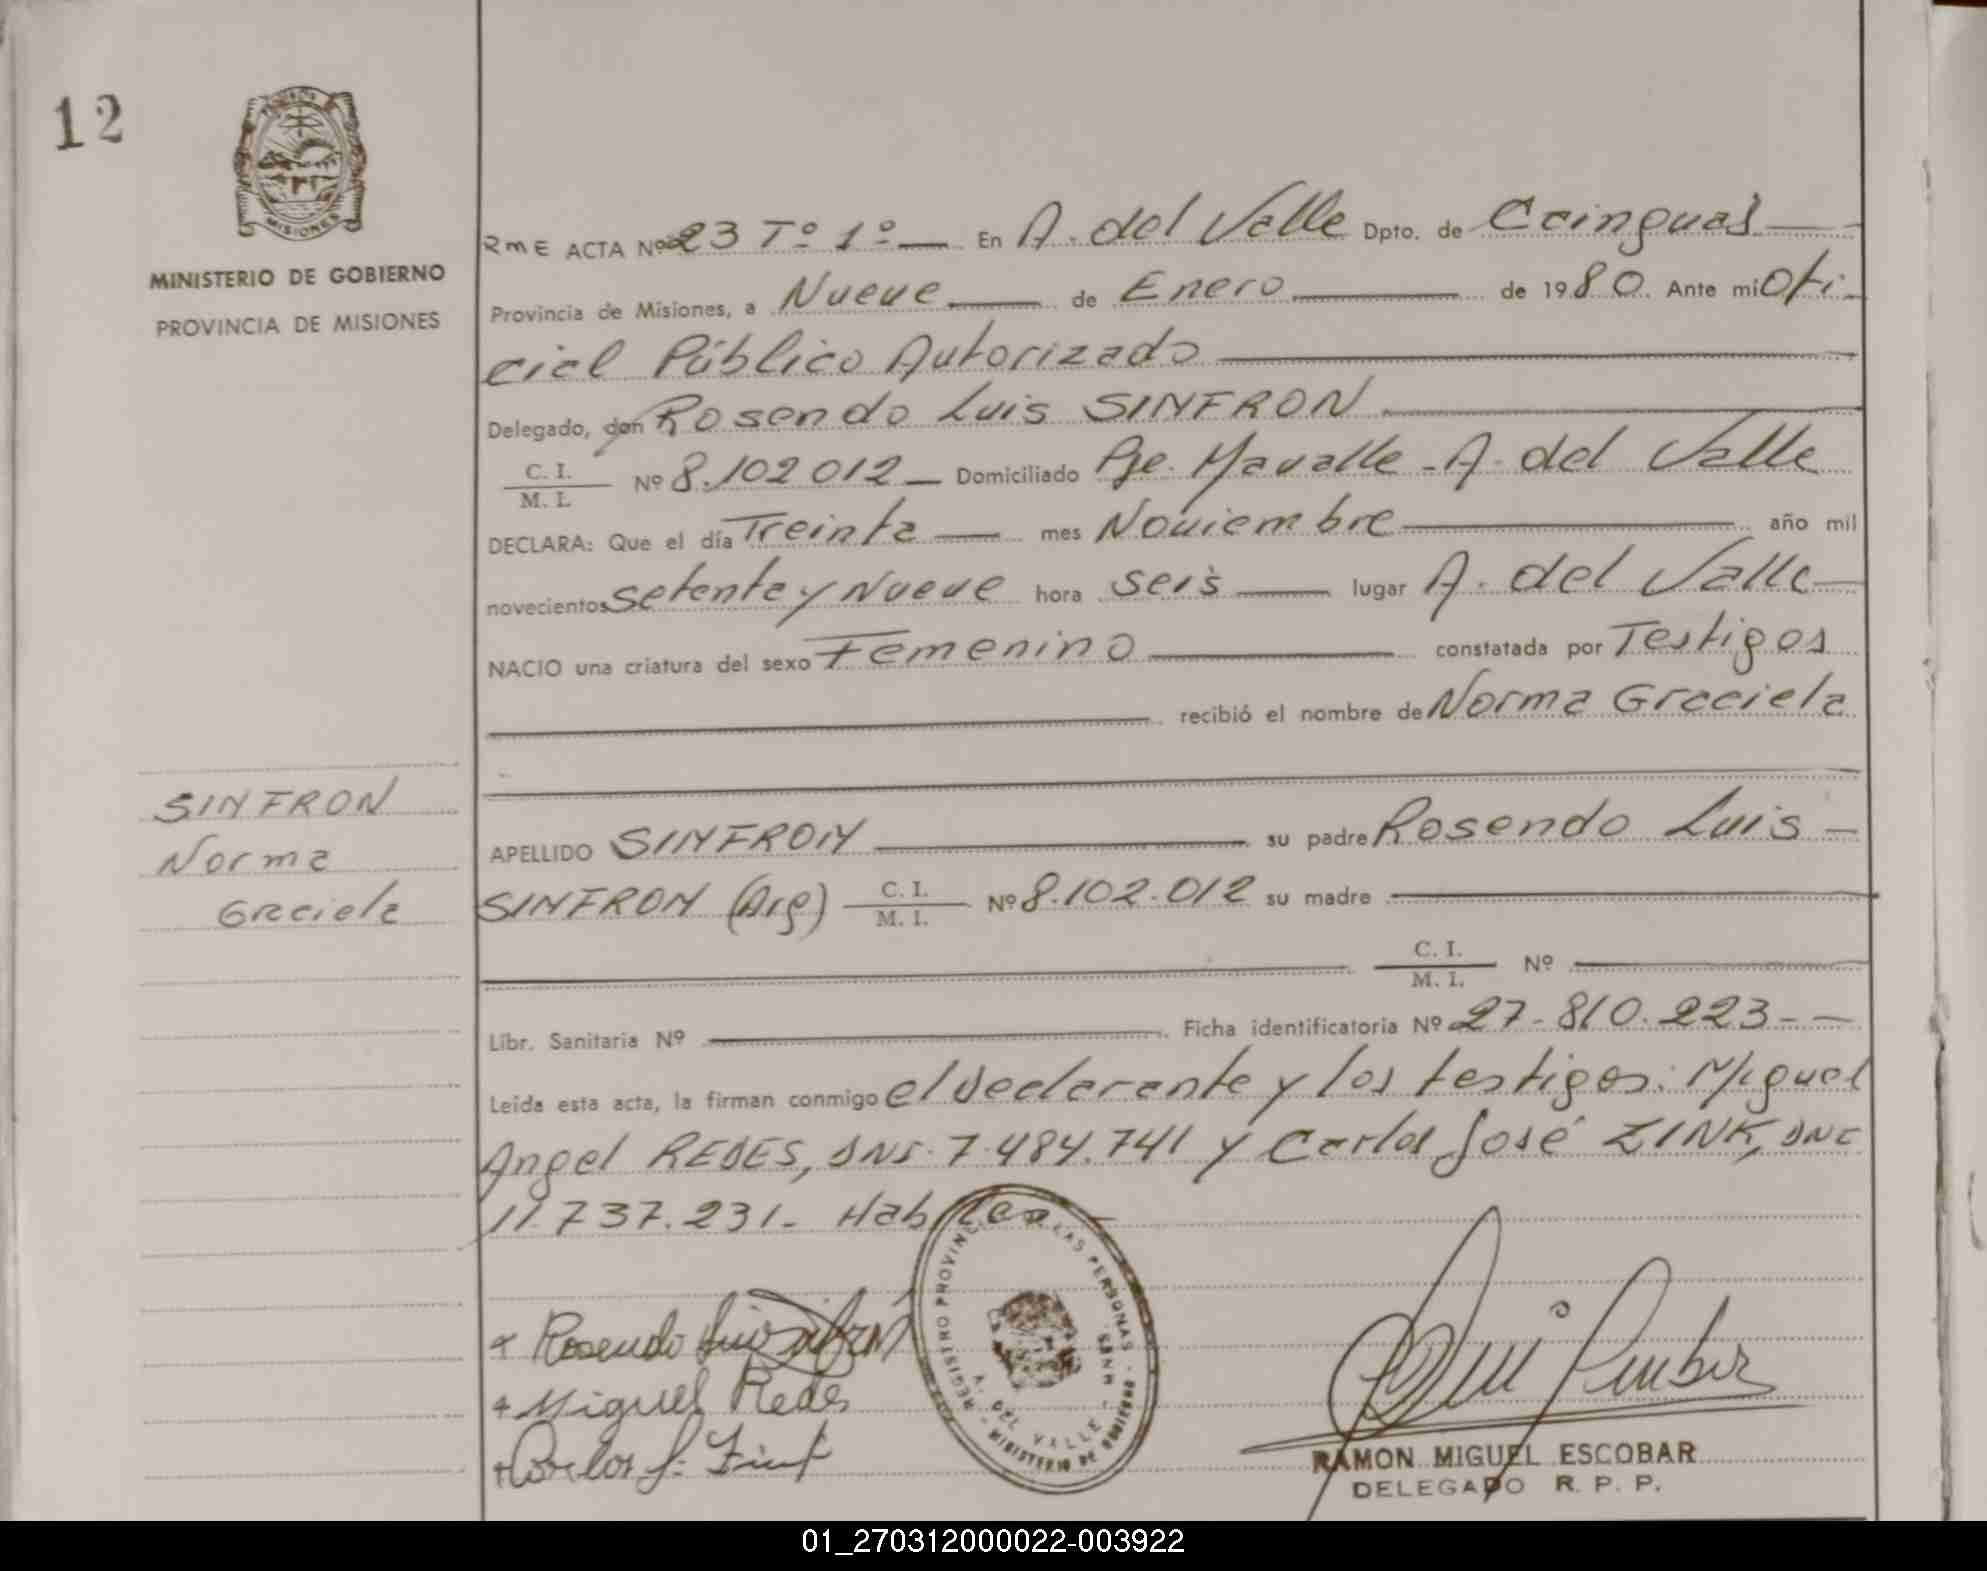 12
MISIONES
MINISTERIO DE GOBIERNO
PROVINCIA DE MISIONES
RmE ACTA Nº 23 Tº 1º En A. del Valle Dpto. de Cainguás
Provincia de Misiones, a Nueve de Enero de 1980. Ante mi Ofi
cial Público Autorizado
Delegado, don Rosendo Luis SINFRON
C. I.
M. I. Nº 8.102 012 Domiciliado Pje. Mavalle - A. del Valle
DECLARA: Que el día Treinta mes Noviembre año mil
novecientos setenta y Nueve hora seis lugar A. del Valle
NACIO una criatura del sexo Femenino constatada por Testigos
recibió el nombre de Norma Graciela
SINFRON
Norma
Graciela
APELLIDO SINFRON su padre Rosendo Luis
SINFRON (Arg) C. I.
M. I. Nº 8.102.012 su madre
C. I.
M. I. Nº
Libr. Sanitaria Nº Ficha identificatoria Nº 27-810.223
Leída esta acta, la firman conmigo el declarante y los testigos: Miguel
Angel REDES, DNI. 7.484.741 y Carlos José ZINK, DNI
11.737.231. Habiles
Rosendo Luis Sinfrón
Miguel Redes
Carlos J. Zink
REGISTRO PROVINCIAL DE LAS PERSONAS
A. DEL VALLE
MINISTERIO DE GOBIERNO
RAMON MIGUEL ESCOBAR
DELEGADO R. P. P.
01_270312000022-003922